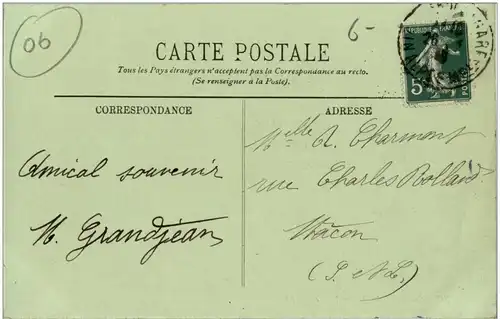 06
6-
CARTE POSTALE
Tous les Pays étrangers n'acceptent pas la Correspondance au recto.
(Se renseigner à la Poste).
CORRESPONDANCE
ADRESSE
REPUBLIQUE FRANÇAISE
5
POSTES
Amical souvenir
M. Grandjean
Melle A. Charmont
rue Charles Rolland
Mâcon
(S. &L.)